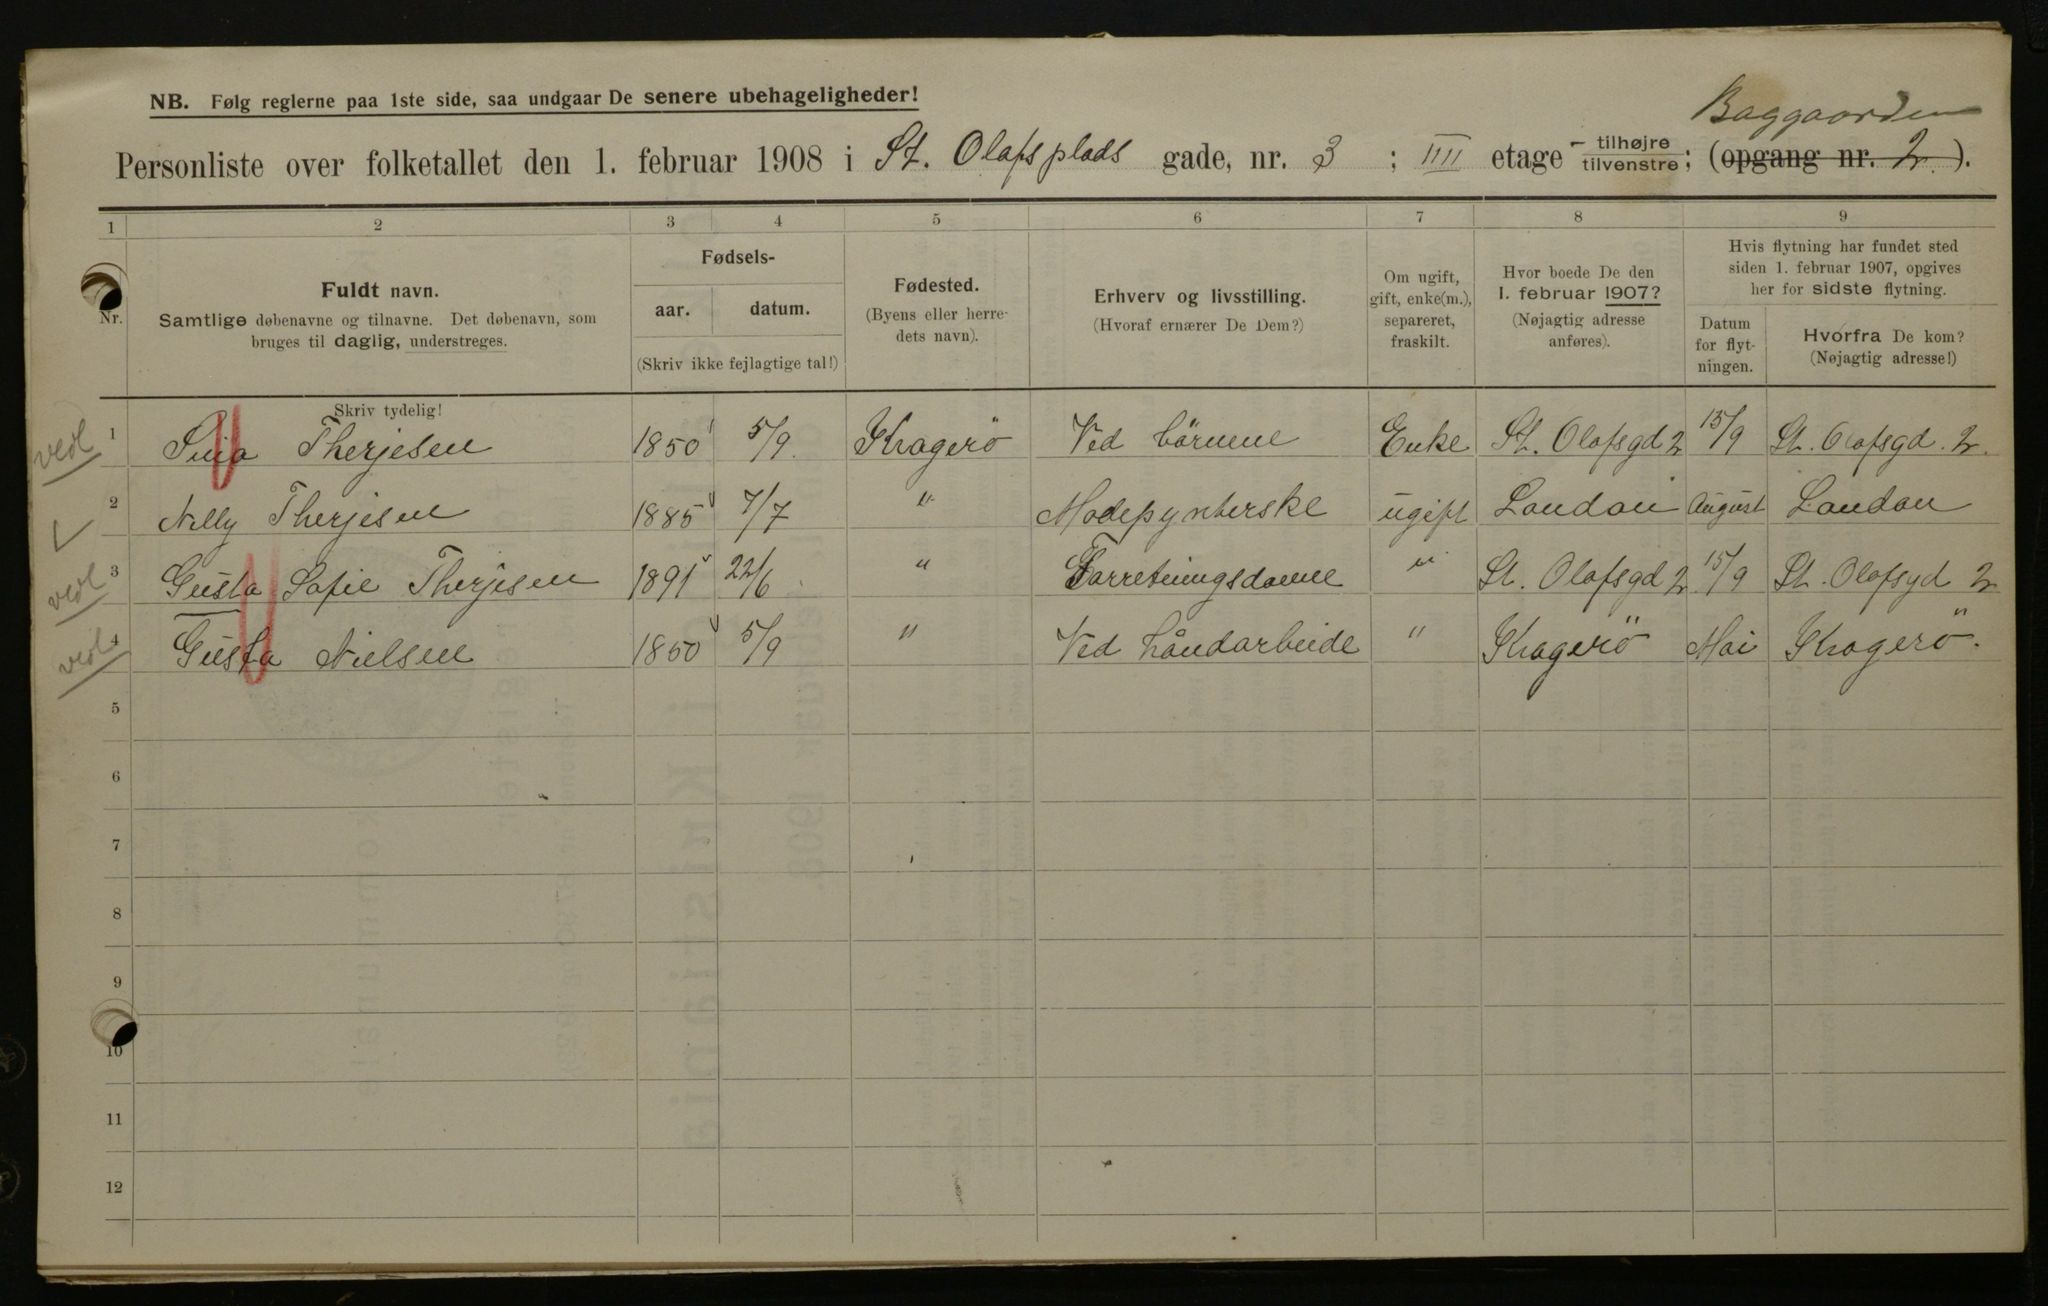 Baggaarden
NB. Følg reglerne paa 1ste side, saa undgaar De senere ubehageligheder!
Personliste over folketallet den 1. februar 1908 i St. Olafsplads gade, nr. 3 ; IIII etage tilhøjre tilvenstre; (opgang nr. 2.).
1 2 3 4 5 6 7 8 9
Nr.
Fuldt navn.
Samtlige døbenavne og tilnavne. Det døbenavn, som
bruges til daglig, understreges.
Fødsels-
aar. datum.
(Skriv ikke fejlagtige tal!)
Fødested.
(Byens eller herre-
dets navn).
Erhverv og livsstilling.
(Hvoraf ernærer De Dem?)
Om ugift,
gift, enke(m.),
separeret,
fraskilt.
Hvor boede De den
1. februar 1907?
(Nøjagtig adresse
anføres).
Hvis flytning har fundet sted
siden 1. februar 1907, opgives
her for sidste flytning.
Datum
for flyt-
ningen.
Hvorfra De kom?
(Nøjagtig adresse!)
Skriv tydelig!
1 Therjesen 1850 5/9 Kragerö Ved börnene Enke St. Olafsgd 2 15/9 St. Olafsgd. 2.
2 Nelly Therjesen 1885 7/7 " Modepynterske ugift London August London
3 Gusta Sofie Therjesen 1891 22/6 " Forretningsdame " St. Olafsgd 2 15/9 St. Olafsgd 2
4 Gusta Nielsen 1850 5/9 " Ved håndarbeide " Kragerö Mai Kragerö.
5
6
7
8
9
10
11
12